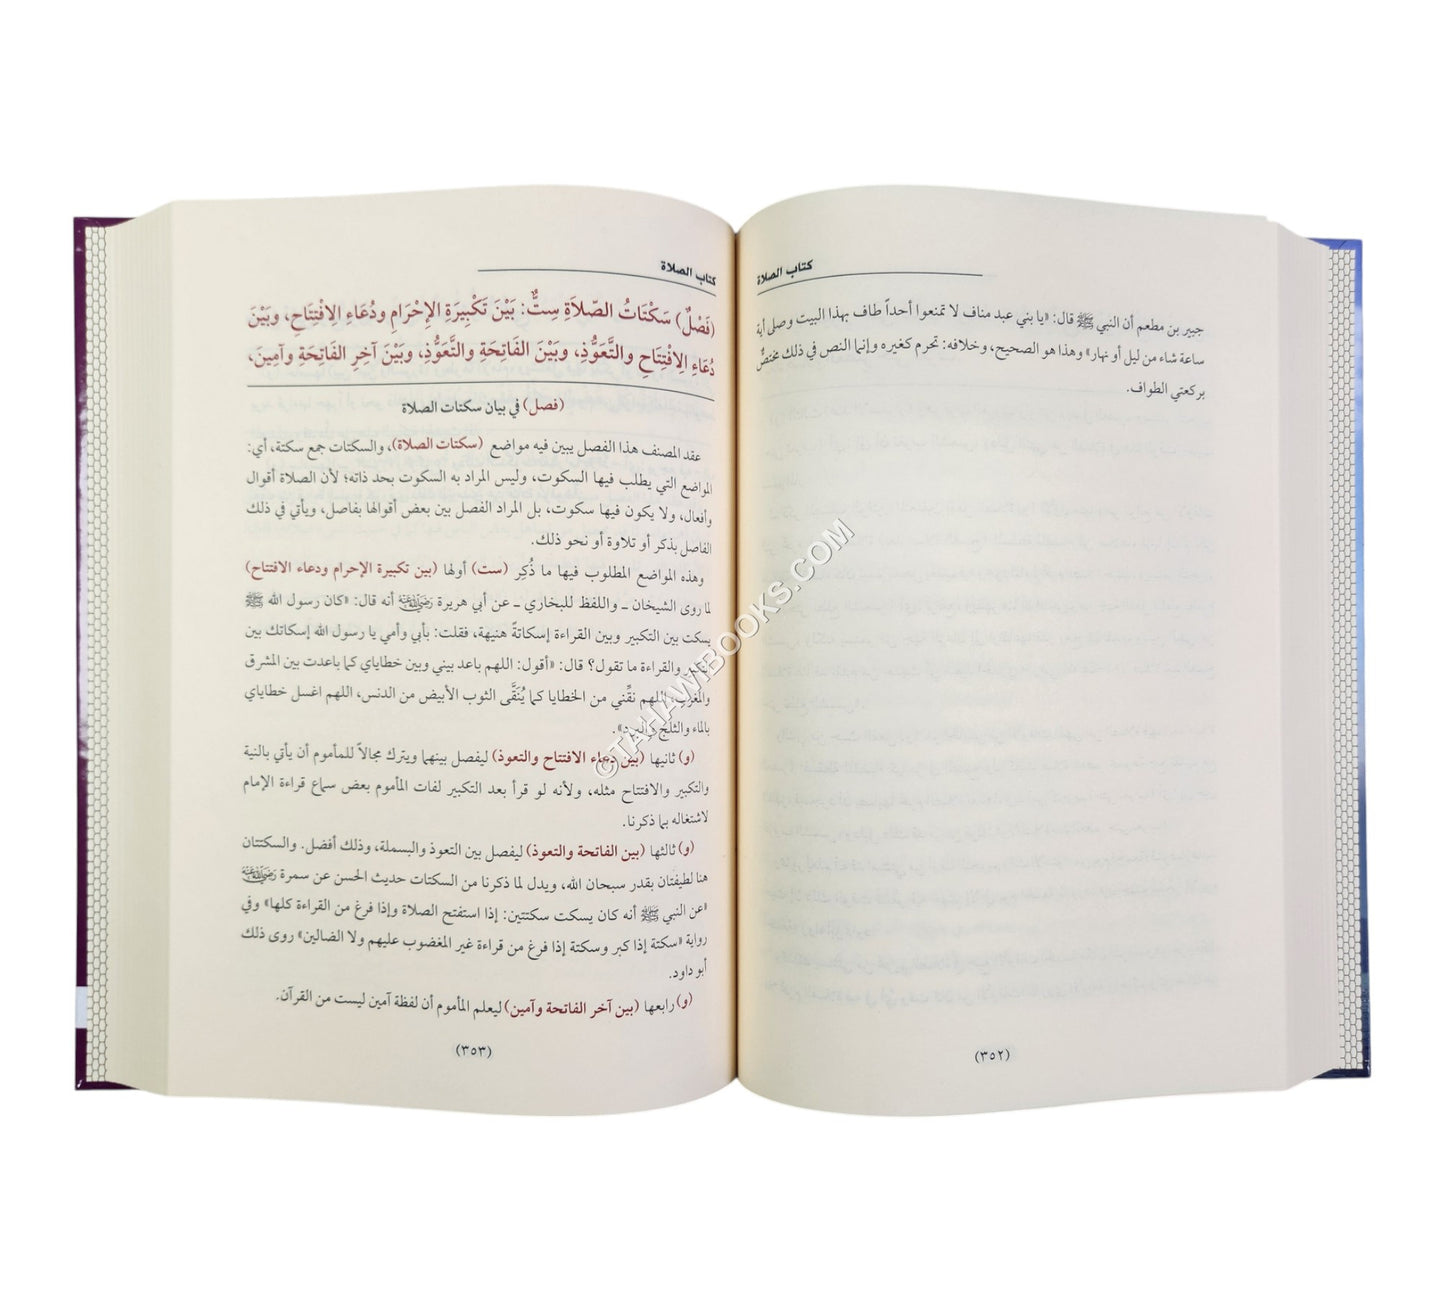 كتاب الصلاة
جبير بن مطعم أن النبي ﷺ قال: «يا بني عبد مناف لا تمنعوا أحداً طاف بهذا البيت وصلى أية
ساعة شاء من ليل أو نهار» وهذا هو الصحيح، وخلافه: تحرم كغيره وإنما النص في ذلك مختصٌّ
بركعتي الطواف.
(٣٥٢)
كتاب الصلاة
(فَصْلٌ) سَكْتَاتُ الصّلاَةِ سِتٌّ: بَيْنَ تَكْبِيرَةِ الإِحْرَامِ ودُعَاءِ الِافْتِتَاحِ، وبَيْنَ
دُعَاءِ الِافْتِتَاحِ والتَّعَوُّذِ، وبَيْنَ الفَاتِحَةِ والتَّعَوُّذِ، وبَيْنَ آخِرِ الفَاتِحَةِ وآمِينَ،
(فصل) في بيان سكتات الصلاة
عقد المصنف هذا الفصل يبين فيه مواضع (سكتات الصلاة)، والسكتات جمع سكتة، أي:
المواضع التي يطلب فيها السكوت، وليس المراد به السكوت بحد ذاته؛ لأن الصلاة أقوال
وأفعال، ولا يكون فيها سكوت، بل المراد الفصل بين بعض أقوالها بفاصل، ويأتي في ذلك
الفاصل بذكر أو تلاوة أو نحو ذلك.
وهذه المواضع المطلوب فيها ما ذُكِر (ست) أولها (بين تكبيرة الإحرام ودعاء الافتتاح)
لما روى الشيخان ـ واللفظ للبخاري ـ عن أبي هريرة رضي الله عنه أنه قال: «كان رسول الله ﷺ
يسكت بين التكبير وبين القراءة إسكاتةً هنيهة، فقلت: بأبي وأمي يا رسول الله إسكاتك بين
التكبير والقراءة ما تقول؟ قال: «أقول: اللهم باعد بيني وبين خطاياي كما باعدت بين المشرق
والمغرب، اللهم نقِّني من الخطايا كما يُنَقَّى الثوب الأبيض من الدنس، اللهم اغسل خطاياي
بالماء والثلج والبرد».
(و) ثانيها (بين دعاء الافتتاح والتعوذ) ليفصل بينهما ويترك مجالاً للمأموم أن يأتي بالنية
والتكبير والافتتاح مثله، ولأنه لو قرأ بعد التكبير لفات المأموم بعض سماع قراءة الإمام
لاشتغاله بما ذكرنا.
(و) ثالثها (بين الفاتحة والتعوذ) ليفصل بين التعوذ والبسملة، وذلك أفضل. والسكتتان
هنا لطيفتان بقدر سبحان الله، ويدل لما ذكرنا من السكتات حديث الحسن عن سمرة رضي الله عنه
«عن النبي ﷺ أنه كان يسكت سكتتين: إذا استفتح الصلاة وإذا فرغ من القراءة كلها» وفي
رواية «سكتة إذا كبر وسكتة إذا فرغ من قراءة غير المغضوب عليهم ولا الضالين» روى ذلك
أبو داود.
(و) رابعها (بين آخر الفاتحة وآمين) ليعلم المأموم أن لفظة آمين ليست من القرآن.
(٣٥٣)
©TAHAWIBOOKS.COM